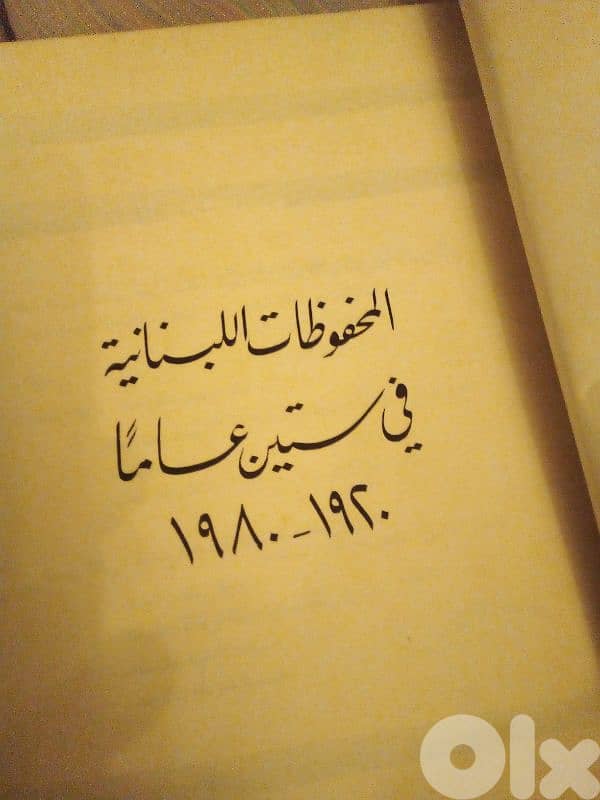 المحفوظات اللبنانية
في ستين عامًا
١٩٢٠ـ١٩٨٠
Olx